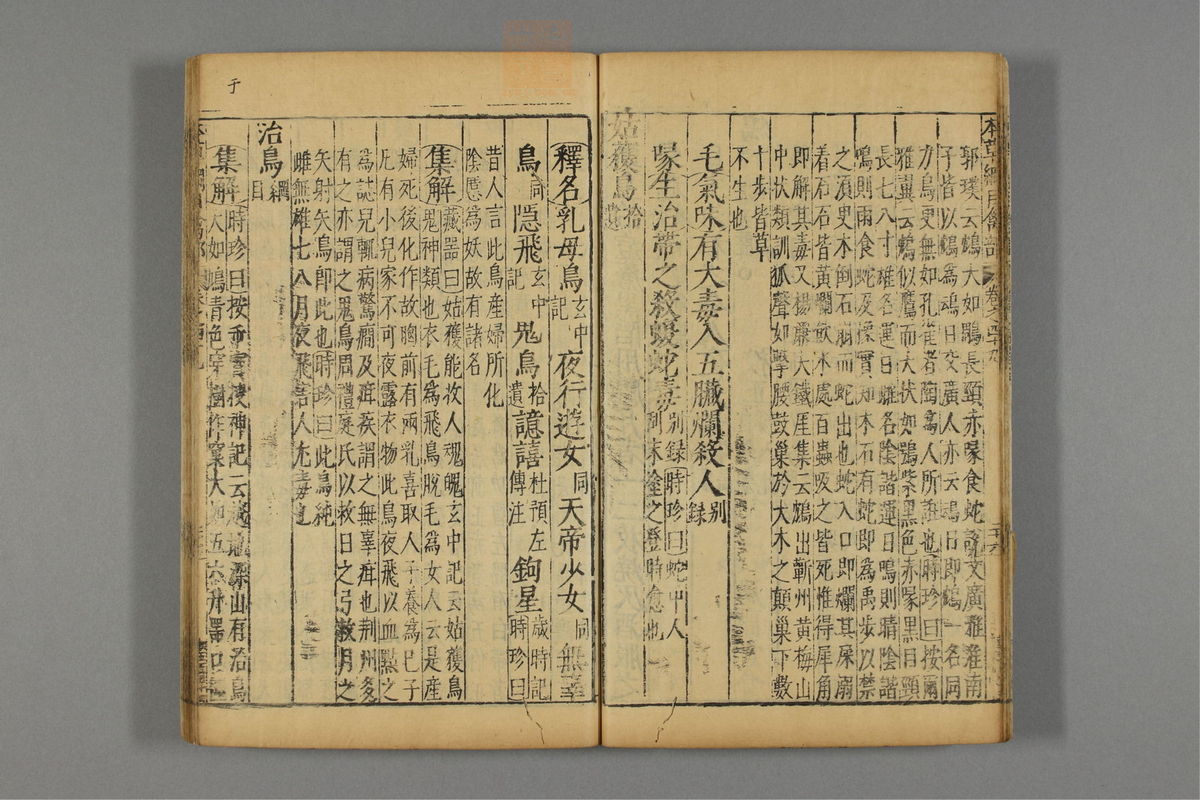 郭璞云鴆大如鵰長頸赤喙食蛇說文廣雅淮南
子皆以鴆為鴆日交廣人亦云鴆日即鴆一名同
力鳥更無如孔雀者陶為人所誑也時珍曰按爾
雅翼云鴆似鷹而大狀如鴞紫黑色赤喙黑目頸
長七八寸雄名運日雌名陰諧運日鳴則晴陰諧
鳴則雨食蛇及橡實知木石有蛇即為禹步以禁
之須臾木倒石崩而蛇出也蛇入口即爛其屎溺
着石石皆黃爛飲水處百蟲吸之皆死惟得犀角
即解其毒又楊廉夫鐵厓集云鴆出蘄州黃梅山
中狀類訓狐聲如擊腰鼓巢於大木之顛巢下數
十步皆草
不生也
毛氣味有大毒入五臟爛殺人別錄
喙主治帶之殺蝮蛇毒別錄時珍曰蛇中人
刮末塗之登時愈也
姑獲鳥拾遺
釋名乳母鳥玄中記夜行遊女同天帝少女同無辜
鳥同隱飛玄中記鬼鳥拾遺譩譆杜預左傳注鉤星歲時記時珍曰
昔人言此鳥產婦所化
陰慝為妖故有諸名
集解藏器曰姑獲能收人魂魄玄中記云姑獲鳥
鬼神類也衣毛為飛鳥脫毛為女人云是產
婦死後化作故胸前有兩乳喜取人子養為己子
凡有小兒家不可夜露衣物此鳥夜飛以血點之
為誌兒輒病驚癇及疳疾謂之無辜疳也荊州多
有之亦謂之鬼鳥周禮庭氏以救日之弓救月之
矢射夭鳥即此也時珍曰此鳥純
雌無雄七八月夜飛害人尤毒也
治鳥綱目
集解時珍曰按干寶搜神記云越地深山有治鳥
大如鳩青色穿樹作窠大如五六升器口徑